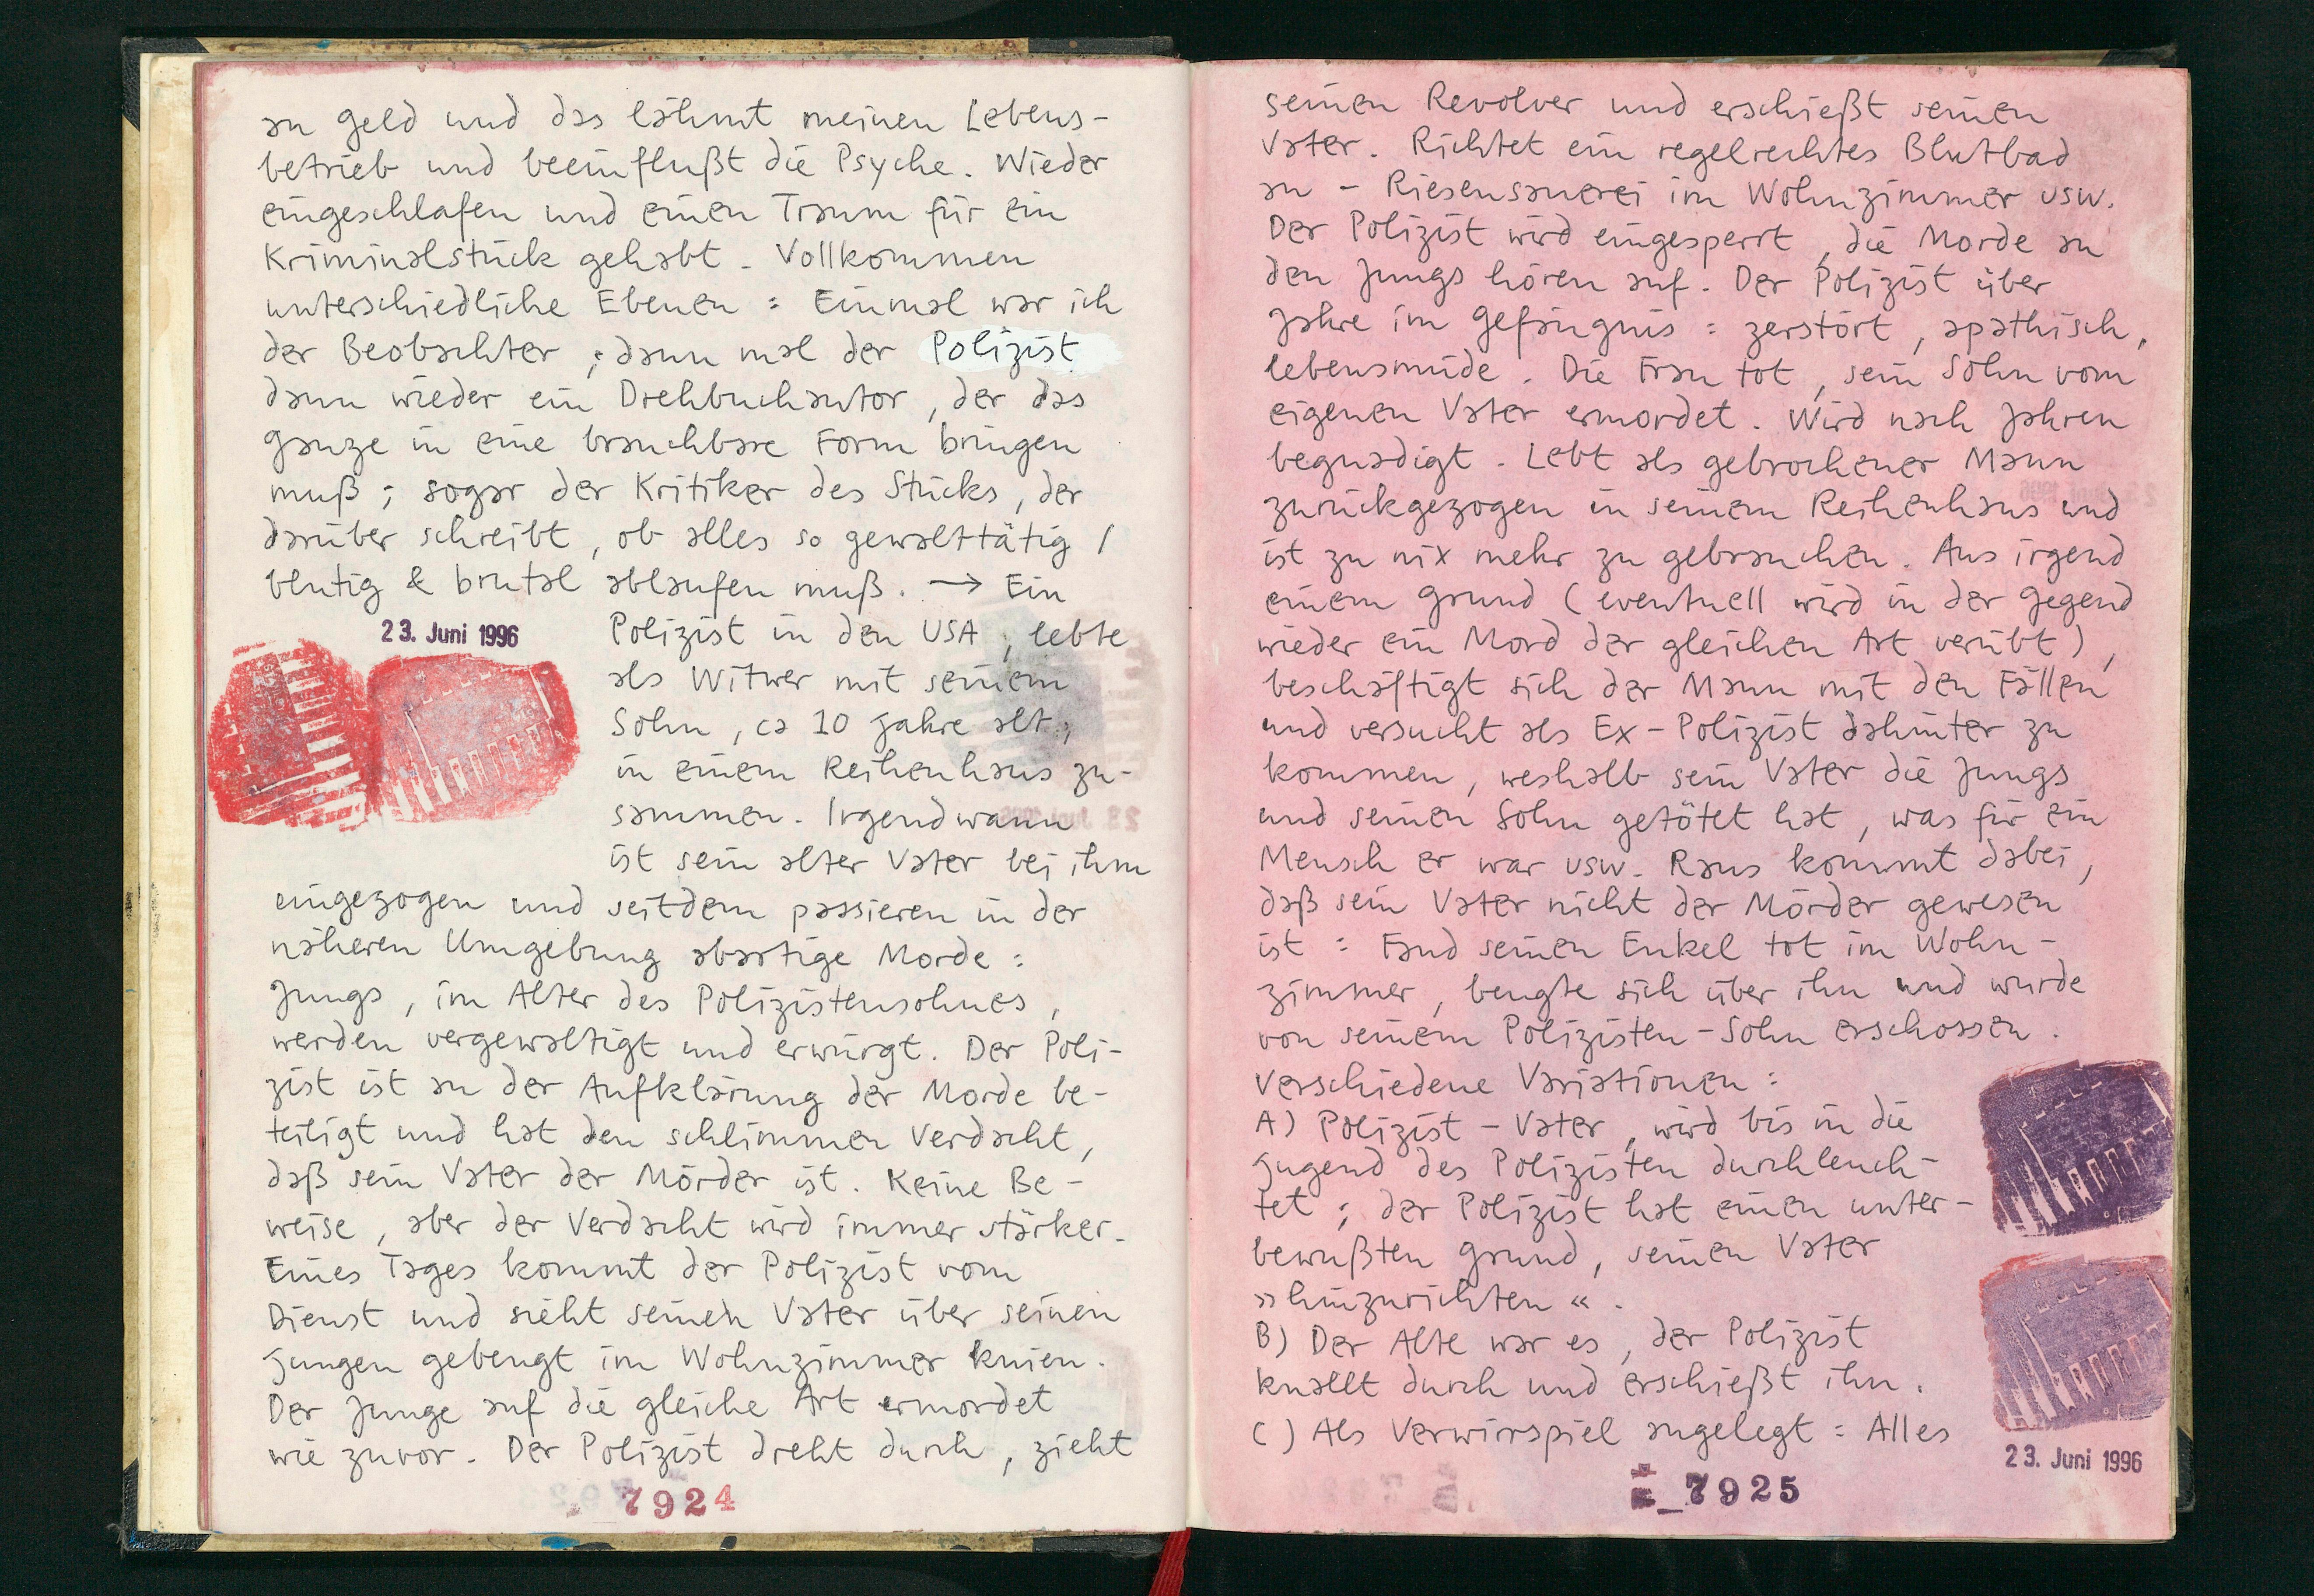 an Geld und das lähmt meinen Lebens-
betrieb und beeinflußt die Psyche. Wieder
eingeschlafen und einen Traum für ein
Kriminalstück gehabt. Vollkommen
unterschiedliche Ebenen: Einmal war ich
der Beobachter; dann mal der Polizist
dann wieder ein Drehbuchautor, der das
ganze in eine brauchbare Form bringen
muß; sogar der Kritiker des Stücks, der
darüber schreibt, ob alles so gewalttätig /
blutig & brutal ablaufen muß. → Ein
23. Juni 1996
Polizist in den USA, lebte
als Witwer mit seinem
Sohn, ca 10 Jahre alt,
in einem Reihenhaus zu-
sammen. Irgendwann
ist sein alter Vater bei ihm
eingezogen und seitdem passieren in der
näheren Umgebung abartige Morde:
Jungs, im Alter des Polizistensohnes,
werden vergewaltigt und erwürgt. Der Poli-
zist ist an der Aufklärung der Morde be-
teiligt und hat den schlimmen Verdacht,
daß sein Vater der Mörder ist. Keine Be-
weise, aber der Verdacht wird immer stärker.
Eines Tages kommt der Polizist vom
Dienst und sieht seinen Vater über seinen
Jungen gebeugt im Wohnzimmer knien.
Der Junge auf die gleiche Art ermordet
wie zuvor. Der Polizist dreht durch, zieht
7924
seinen Revolver und erschießt seinen
Vater. Richtet ein regelrechtes Blutbad
an - Riesensauerei im Wohnzimmer usw.
Der Polizist wird eingesperrt, die Morde an
den Jungs hören auf. Der Polizist über
Jahre im Gefängnis: zerstört, apathisch,
lebensmüde. Die Frau tot, sein Sohn vom
eigenen Vater ermordet. Wird nach Jahren
begnadigt. Lebt als gebrochener Mann
zurückgezogen in seinem Reihenhaus und
ist zu nix mehr zu gebrauchen. Aus irgend
einem Grund (eventuell wird in der Gegend
wieder ein Mord der gleichen Art verübt),
beschäftigt sich der Mann mit den Fällen
und versucht als Ex-Polizist dahinter zu
kommen, weshalb sein Vater die Jungs
und seinen Sohn getötet hat, was für ein
Mensch er war usw. Raus kommt dabei,
daß sein Vater nicht der Mörder gewesen
ist: Fand seinen Enkel tot im Wohn-
zimmer, beugte sich über ihn und wurde
von seinem Polizisten-Sohn erschossen.
Verschiedene Variationen:
A) Polizist-Vater, wird bis in die
Jugend des Polizisten durchleuch-
tet; der Polizist hat einen unter-
bewußten Grund, seinen Vater
»hinzurichten«.
B) Der Alte war es, der Polizist
knallt durch und erschießt ihn.
C) Als Verwirrspiel angelegt: Alles
23. Juni 1996
7925